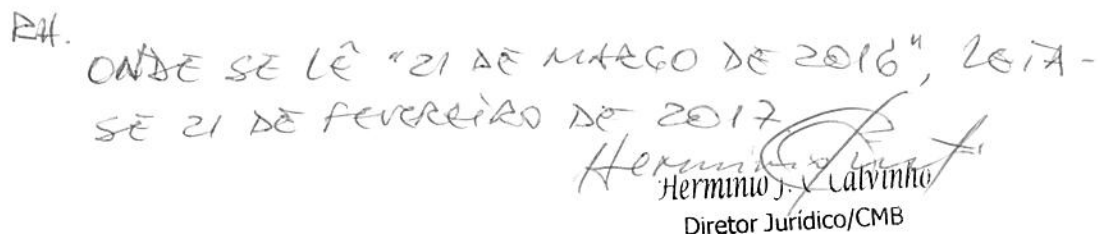 RH.
ONDE SE LÊ "21 DE MARÇO DE 2016", LEIA-
SE 21 DE FEVEREIRO DE 2017
Herminio
Herminio J. Calvinho
Diretor Jurídico/CMB